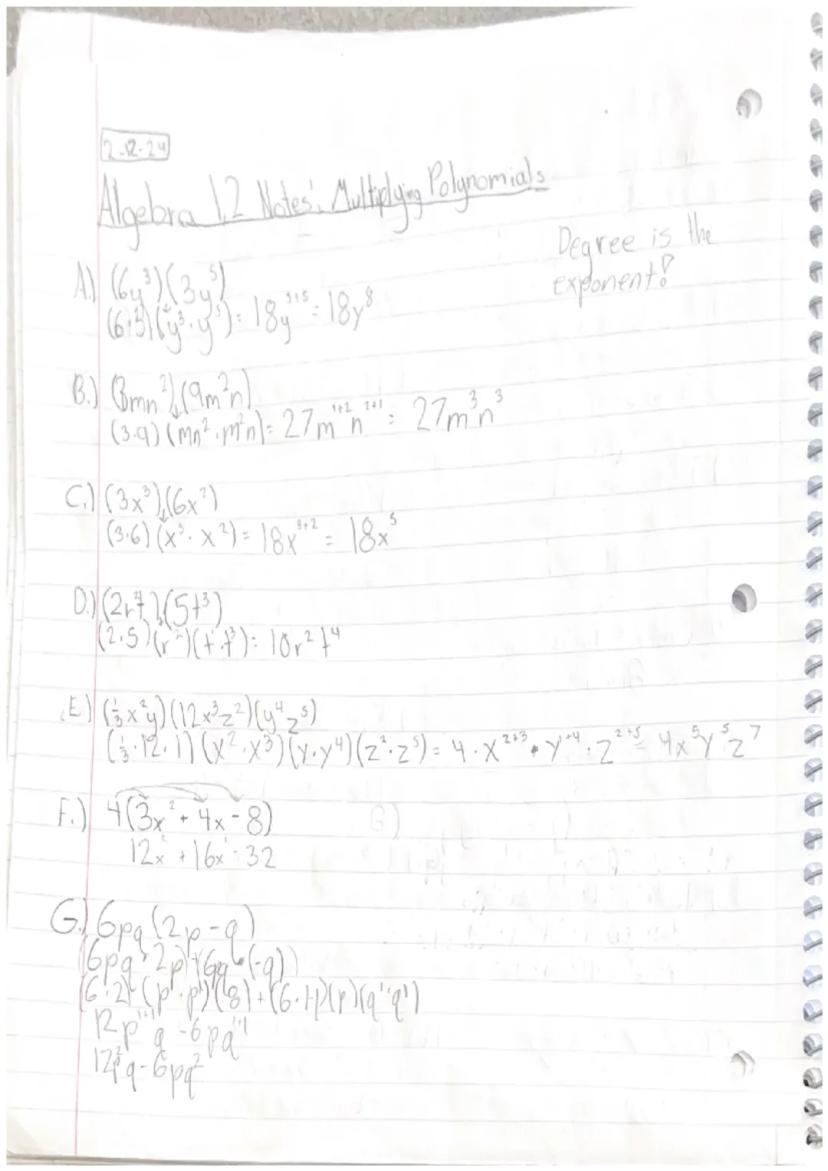 2-12-24
Algebra 1.2 Notes: Multiplying Polynomials
Degree is the
exponent!
A.) (6y³)(3y⁵)
(6·3)(y³·y⁵) = 18y³⁺⁵ = 18y⁸
B.) (3mn²)(9m²n)
(3·9)(mn²·m²n) = 27m¹⁺²n²⁺¹ = 27m³n³
C.) (3x³)(6x²)
(3·6)(x³·x²) = 18x³⁺² = 18x⁵
D.) (2r²t)(5t³)
(2·5)(r²)(t·t³) = 10r²t⁴
E.) (⅓x²y)(12x³z²)(y⁴z⁵)
(⅓·12·1)(x²·x³)(y·y⁴)(z²·z⁵) = 4·x²⁺³·y¹⁺⁴·z²⁺⁵ = 4x⁵y⁵z⁷
F.) 4(3x²+4x-8)
12x²+16x-32
G.) 6pq(2p-q)
(6pq·2p)+(6pq·(-q))
(6·2)(p¹·p¹)(8)+(6·-1)(p)(q¹·q¹)
12p¹⁺¹q-6pq¹⁺¹
12p²q-6pq²